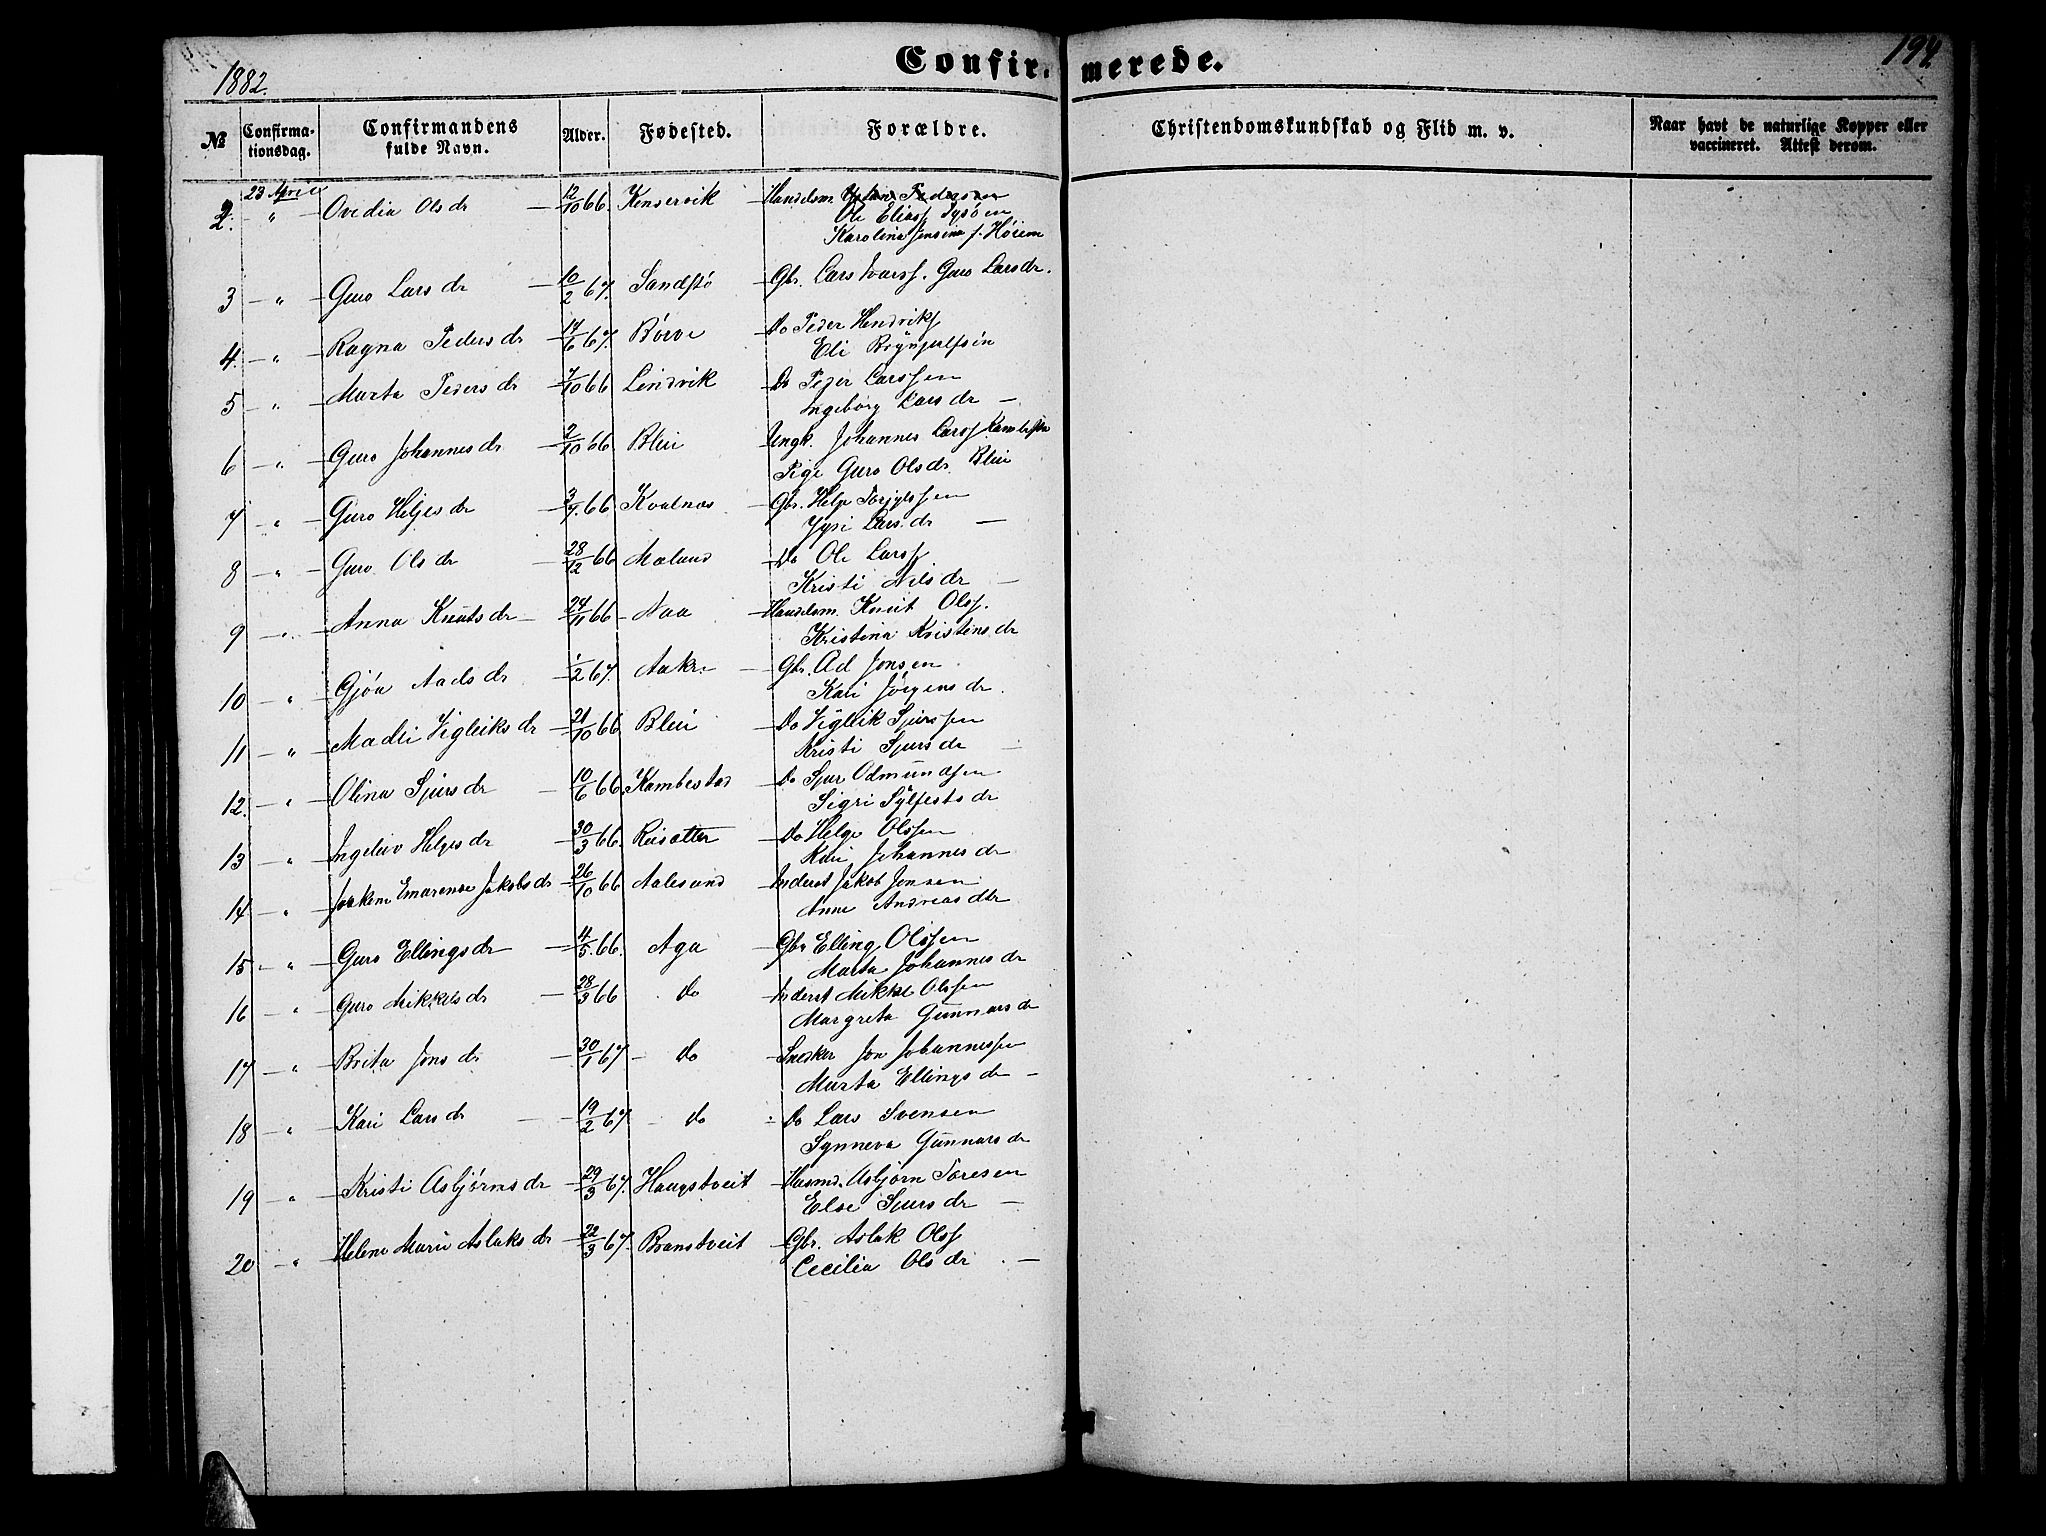 1882.
Confirmerede.
194
№ Confirmationsdag. Confirmandens fulde Navn. Alder. Fødested. Forældre. Christendomskundskab og Flid m. v. Naar havt de naturlige Kopper eller vaccineret. Attest derom.
23 April
2. " Ovedia Olsdr 12/10 66 Kinservik Handelsm.
Ole Eliass Sysöen
Karolina Jensina f. Höiem
3 " Guro Larsdr 10/2 67. Sandstö Gbr. Lars Ivarss. Guro Larsdr.
4. " Ragna Pedersdr 14/6 67. Börve Do Peder Hendriks
Eli Brynjulfsön
5 " Marta Pedersdr 7/10 66 Lindvik Do Peder Larssen
Ingeborg Larsdr
6 " Guro Johannesdr 2/10 66 Bleie Ungk. Johannes Larss Kambestad
Pige Guro Olsdr. Bleie
7 " Guro Heljesdr 3/9. 66 Kvalnes Gbr. Helje Torjylssen
Jyri Larsdr
8 " Guro Olsdr 28/12 66 Mæland Do Ole Larss
Kristi Nilsdr
9 " Anna Knutsdr 24/11 66 Naa Handelsm. Knut Olss.
Kristina Kristensdr
10 " Gjöa Aadsdr 1/2 67. Aakre Gbr. Ad Jonsen
Kari Jörgensdr.
11 " Madli Vigleiksdr 21/10 66 Bleie Do Vigleik Sjurssen
Kristi Sjursdr
12. " Olina Sjursdr 10/6 66. Kambestad Do Sjur Odmundsen
Sigri Sylfestsdr
13 " Ingeleiv Helgesdr 30/3 66. Reisæter Do Helge Olssen
Kari Johannesdr
14 " Joakine Emarense Jakobsdr 26/10 66 Aalesund Inderst Jakob Jonsen
Anne Andreasdtr
15 " Guro Ellingsdr 4/5. 66. Aga Gbr Elling Olssen
Marta Johannesdr
16 " Guro Mikkelsdr 28/3 66 do Inderst Mikkel Olssen
Margreta Gunnarsdr
17 " Brita Jonsdr 30/1 67 do Snedker Jon Johannessen
Marta Ellingsdr
18 " Kari Larsdr 19/2 67. do Do Lars Svensen
Synneva Gunnarsdr
19 " Kristi Asbjörnsdr 29/3 67. Haugstveit Husmd. Asbjörn Toresen
Else Sjursdr
20 " Helene Marie Aslaksdr 22/3 67. Branstveit Gbr. Aslak Olss
Cecilia Olsdr